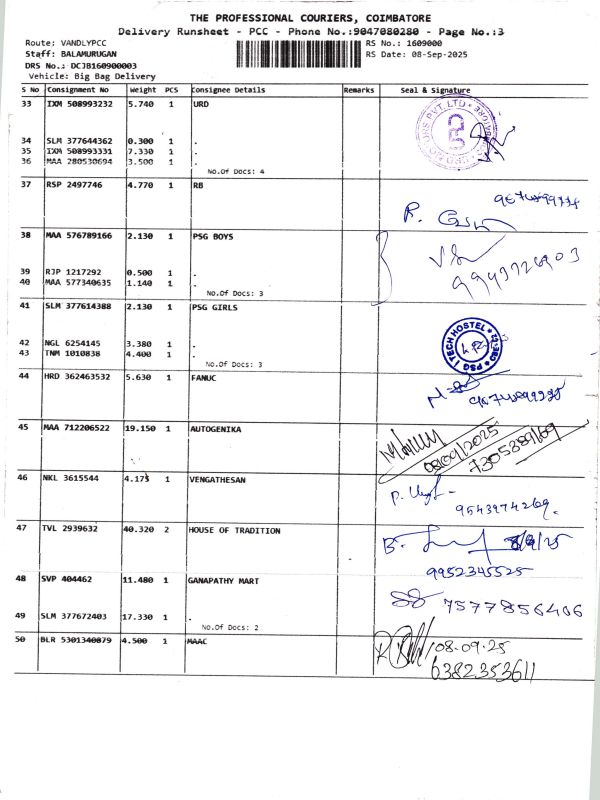 THE PROFESSIONAL COURIERS, COIMBATORE
Delivery Runsheet - PCC - Phone No.:9047080280 - Page No.:3
Route: VANDLYPCC RS No.: 1609000
Staff: BALAMURUGAN RS Date: 08-Sep-2025
DRS No.: DCJB160900003
Vehicle: Big Bag Delivery
S No Consignment No Weight PCS Consignee Details Remarks Seal & Signature
33 IXM 508993232 5.740 1 URD
34 SLM 377644362 0.300 1 .
35 IXM 508993331 7.330 1 .
36 MAA 280530694 3.500 1 .
No.Of Docs: 4
37 RSP 2497746 4.770 1 RB
R.
38 MAA 576789166 2.130 1 PSG BOYS
39 RJP 1217292 0.500 1 .
40 MAA 577340635 1.140 1 .
No.Of Docs: 3
41 SLM 377614388 2.130 1 PSG GIRLS
42 NGL 6254145 3.380 1 .
43 TNM 1010838 4.400 1 .
No.Of Docs: 3
PSG iTECH HOSTEL
44 HRD 362463532 5.630 1 FANUC
45 MAA 712206522 19.150 1 AUTOGENIKA
08/09/2025
7305889169
46 NKL 3615544 4.175 1 VENGATHESAN
9543974269.
47 TVL 2939632 40.320 2 HOUSE OF TRADITION
8/9/25
9952345525
48 SVP 404462 11.480 1 GANAPATHY MART
7577856406
49 SLM 377672403 17.330 1 .
No.Of Docs: 2
50 BLR 5301340879 4.500 1 MAAC
08-09-25
6382353611